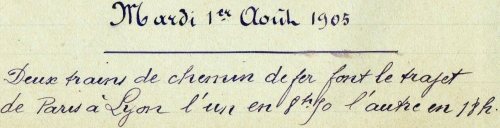 Mardi 1er Août 1905
Deux trains de chemin de fer font le trajet
de Paris à Lyon l'un en 8h50 l'autre en 13h.